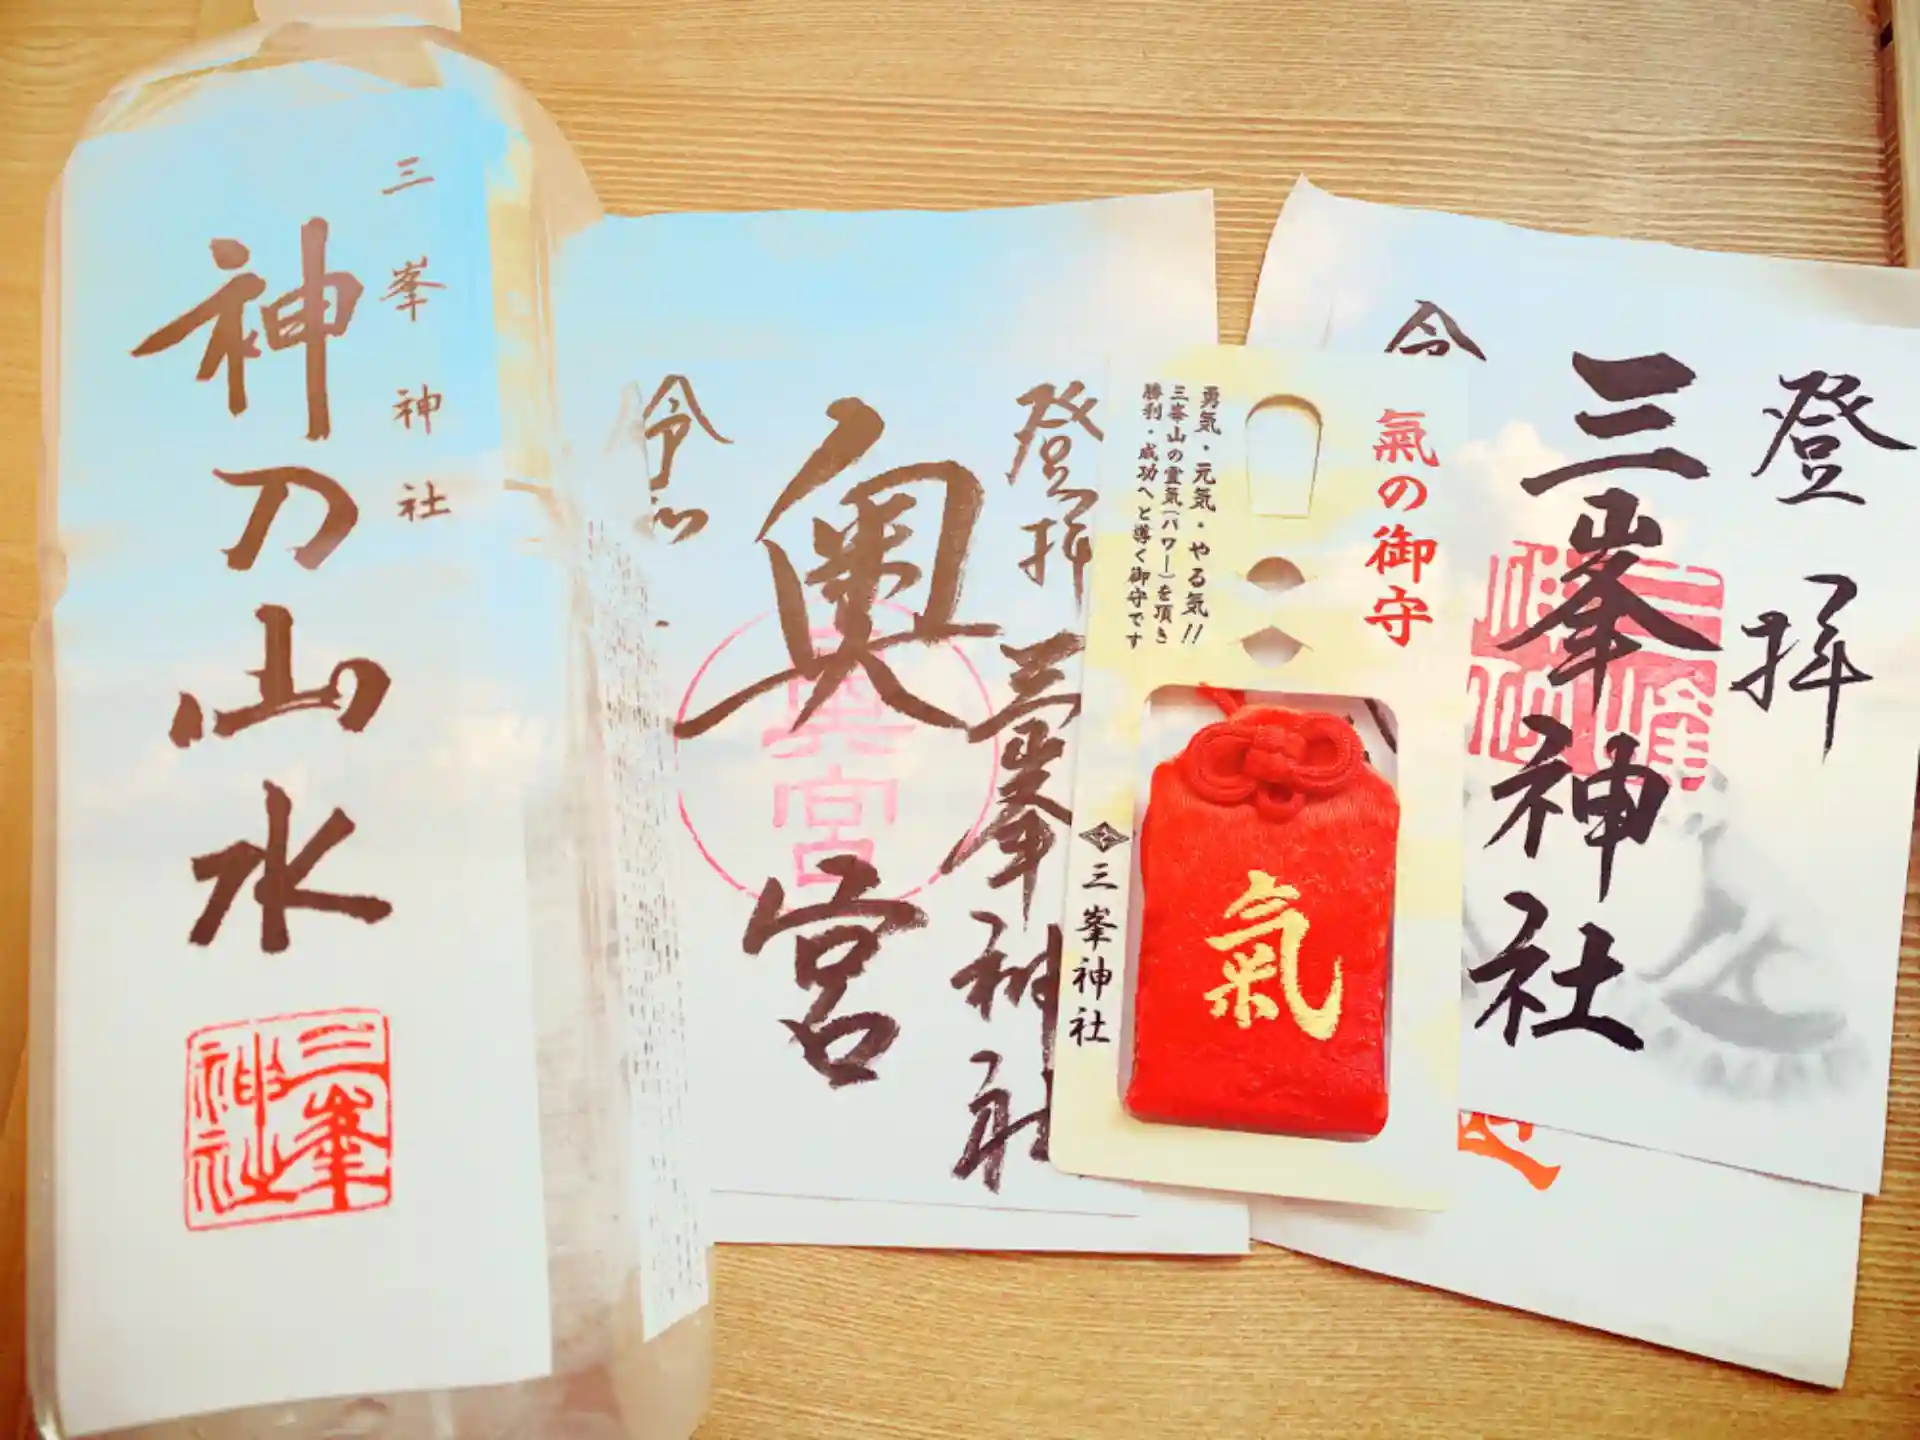 三峯神社
神刀山水
三峯神社
登拝
三峯神社
奥宮
奥宮
令和
氣の御守
勇気・元気・やる気!!
三峯山の霊気(パワー)を頂き
勝利・成功へと導く御守です
氣
三峯神社
登拝
三峯神社
令